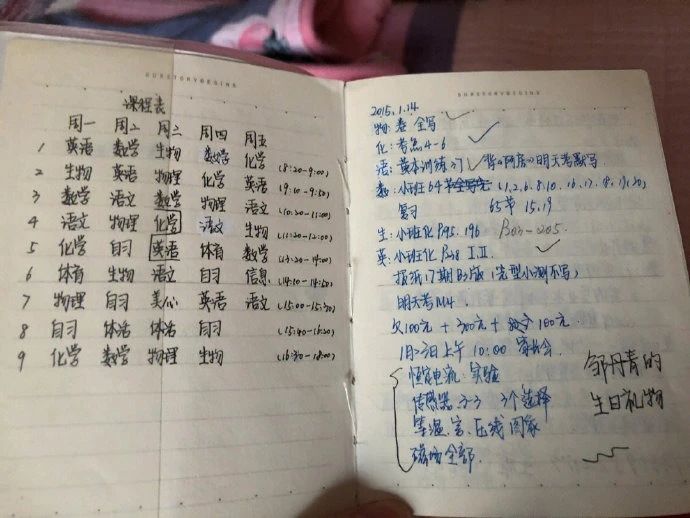 OURSTORYBEGINS
课程表
周一 周二 周三 周四 周五
1 英语 数学 生物 数学 化学 (8:20-9:00)
2 生物 英语 物理 化学 英语 (9:10-9:50)
3 数学 语文 数学 物理 语文 (10:20-11:00)
4 语文 物理 化学 语文 生物 (11:20-12:00)
5 化学 自习 英语 体育 数学 (13:20-14:00)
6 体育 生物 语文 自习 信息 (14:10-14:50)
7 物理 自习 美心 英语 语文 (15:00-15:30)
8 自习 体活 体活 自习 (15:40-16:20)
9 化学 数学 物理 生物 (16:30-18:00)
OURSTORYBEGINS
2015.1.14
物: 卷 全写
化: 考点4-6
语: 黄本训练(7) 背《阿房》明天考默写
数: 小班 64 1,2,6,8,10,16,17,18,19,20,
复习 65节 15.19
生: 小班化 P195.196 P203-205
英: 小班化 P238 I.II
报纸17期 B3版 (完型小测不写)
明天考M4
欠100元+300元+ 100元
上午10:00 家长会
恒定电流: 实验
传感器 2-3 3个选择
等温、容、压线 图象
磁场全部
邹丹青的
生日礼物